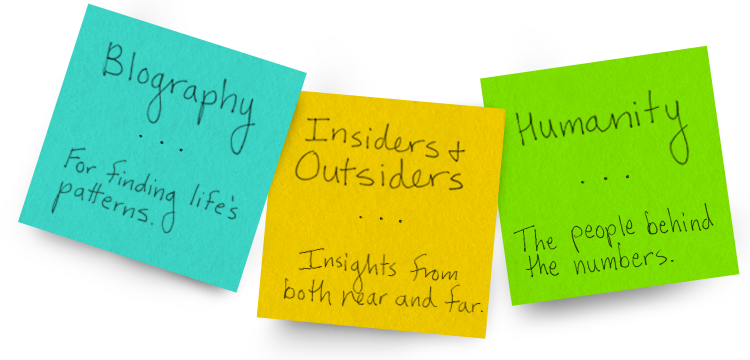 Biography
...
For finding life's
patterns.
Insiders &
Outsiders
...
Insights from
both near and far.
Humanity
...
The people behind
the numbers.